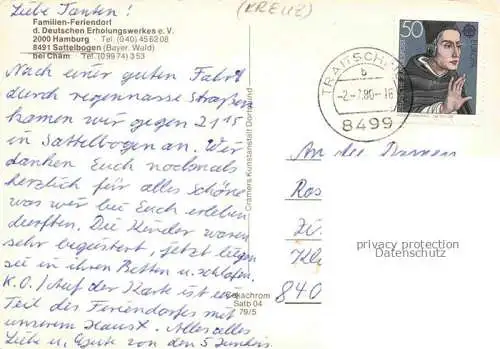 Liebe Tanten!
(KREUZ)
Familien-Feriendorf
d. Deutschen Erholungswerkes e. V.
2000 Hamburg Tel. (040) 45 62 08
8491 Sattelbogen (Bayer. Wald)
bei Cham Tel. (0 99 74) 3 53
Nach einer guten Fahrt
durch regennasse Straßen
kamen wir gegen 21 15
in Sattelbogen an. Wir
danken Euch nochmals
herzlich für alles Schöne
was wir bei Euch erleben
durften. Die Kinder waren
sehr begeistert, jetzt liegen
sie in ihren Betten u. schlafen.
K.O.! Auf der Karte ist ein
Teil des Feriendorfes mit
unserem Haus X. Alles alles
Liebe u. Gute von den 5
Cramers Kunstanstalt Dortmund
Satb 04
79/5
b
-2.-7.80-16
8499
50
An die Damen
Ros
privacy protection
Datenschutz
840